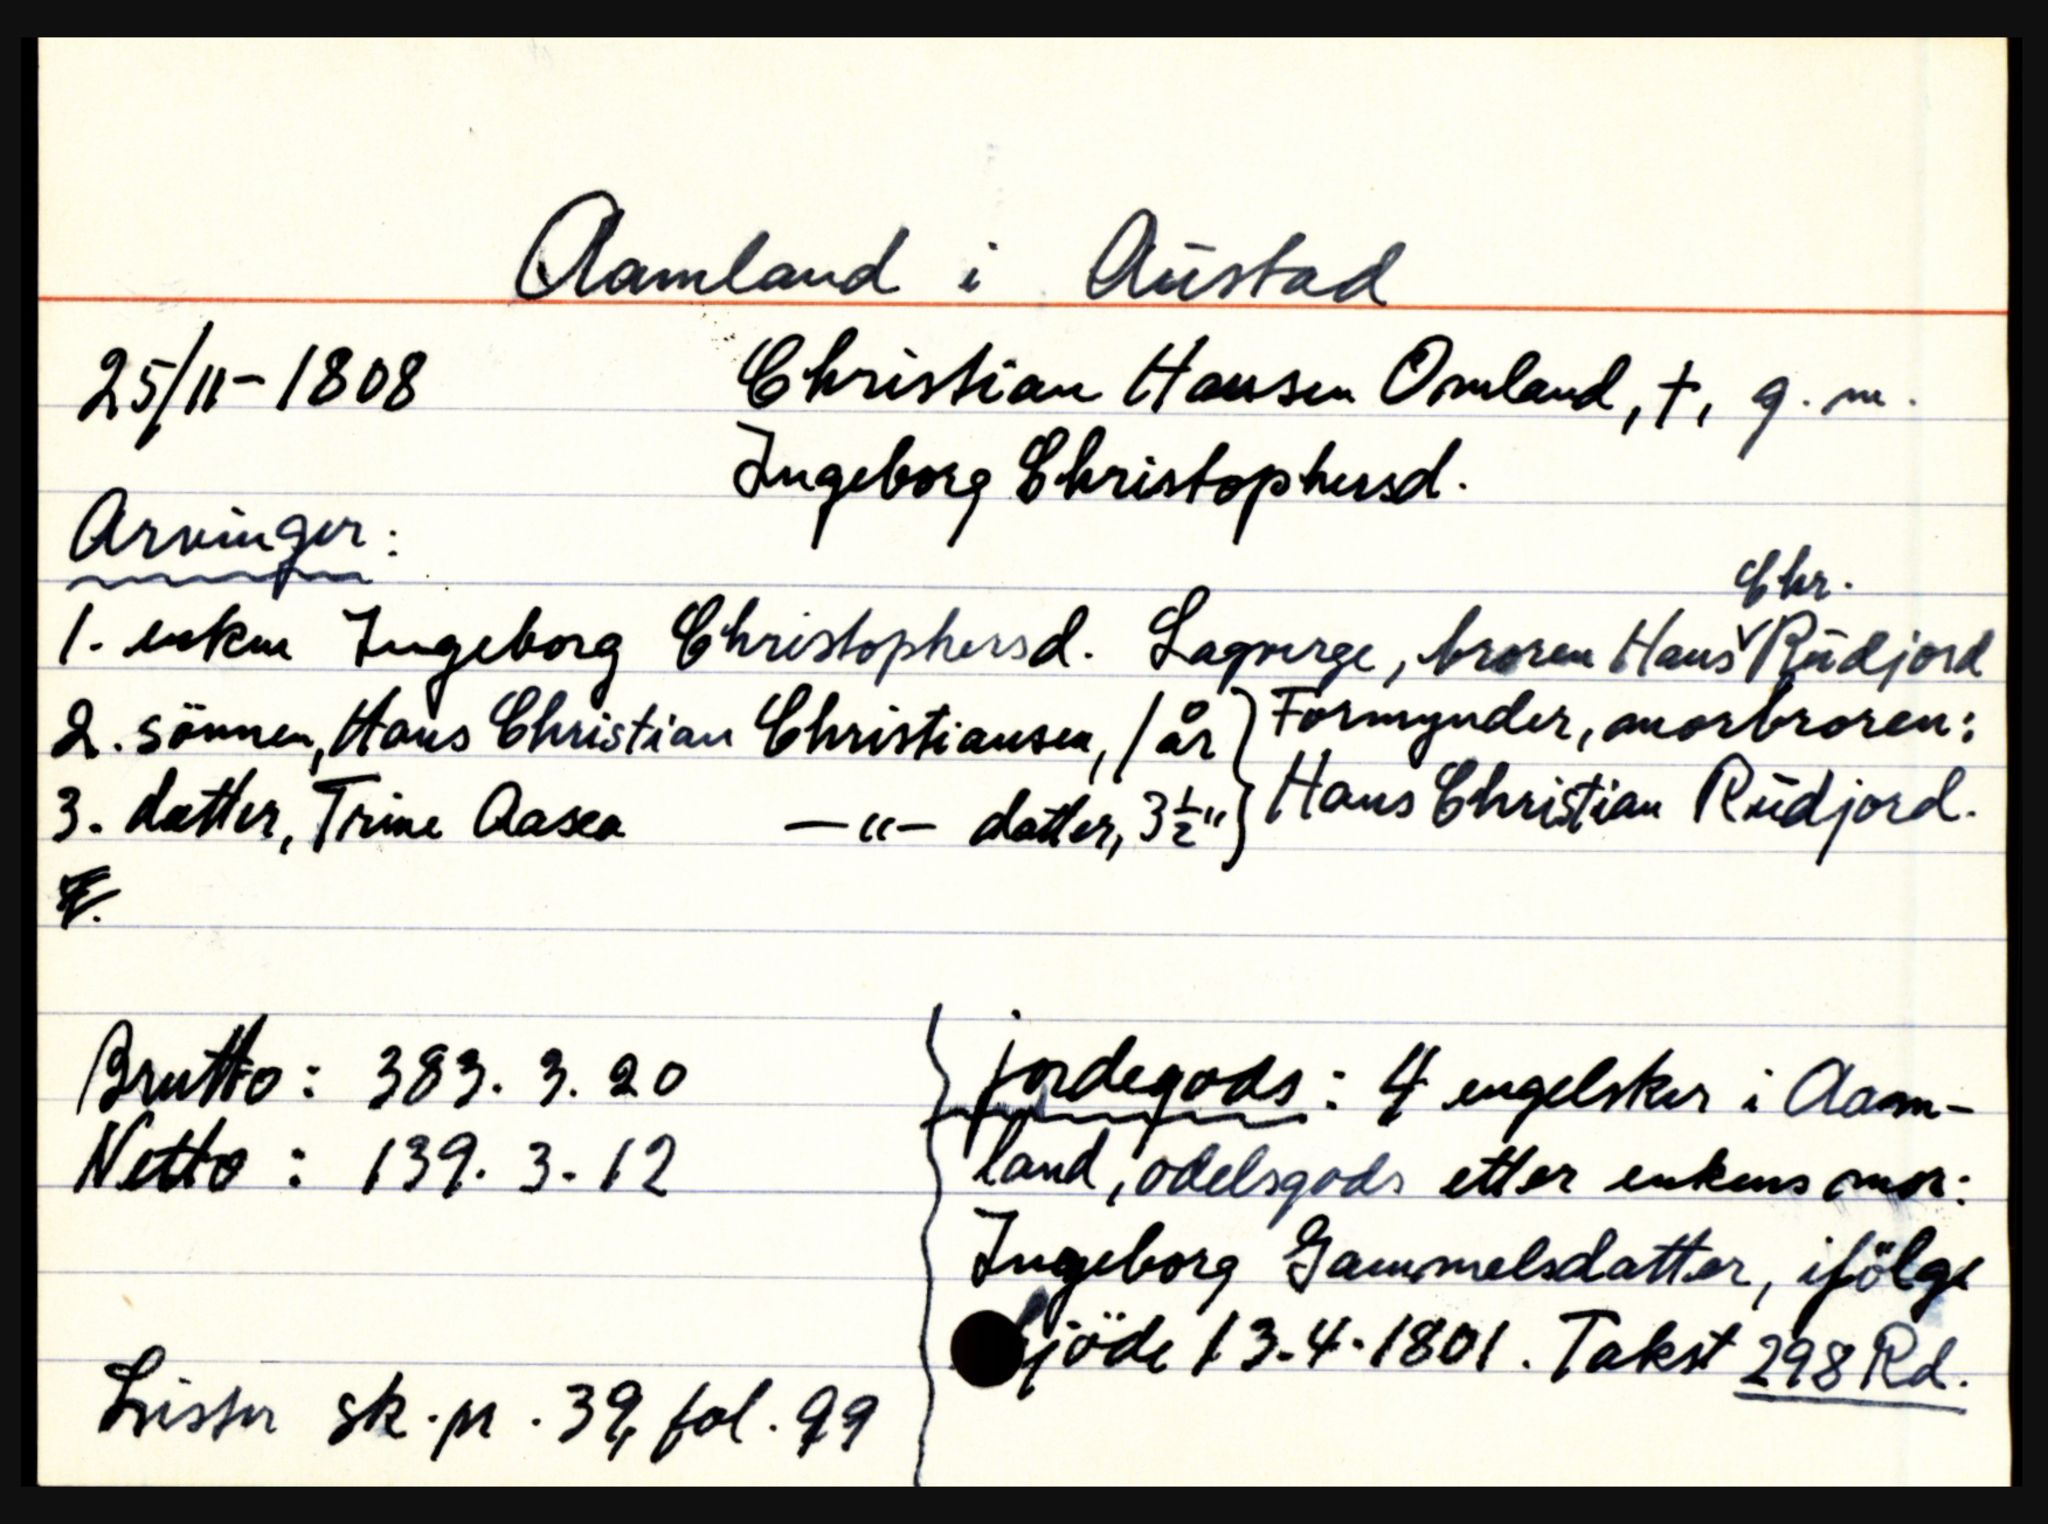 Aamland i Austad
25/11-1808 Christian Hansen Omland, †, g. m.
Ingeborg Christophersd.
Arvinger:
1. enken Ingeborg Christophersd. Lagverge, broren Hans Chr. Rüdjord
2. sönnen, Hans Christian Christiansen, 1 år } Formynder, morbroren:
3. datter, Trine Aasea —"— datter, 3½ " } Hans Christian Rüdjord.
Brutto: 383. 3. 20
Netto: 139. 3. 12
jordegods: 4 engelsker i Aam-
land, odelsgods etter enkens mor:
Ingeborg Gammelsdatter, ifölge
jöde 13-4-1801. Takst 298 Rd.
Lister sk. pr. 39, fol. 99